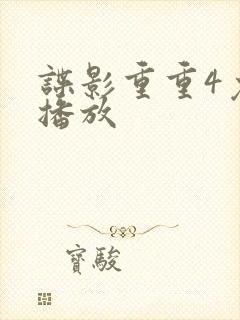 諜影重重4
播放
寶駿